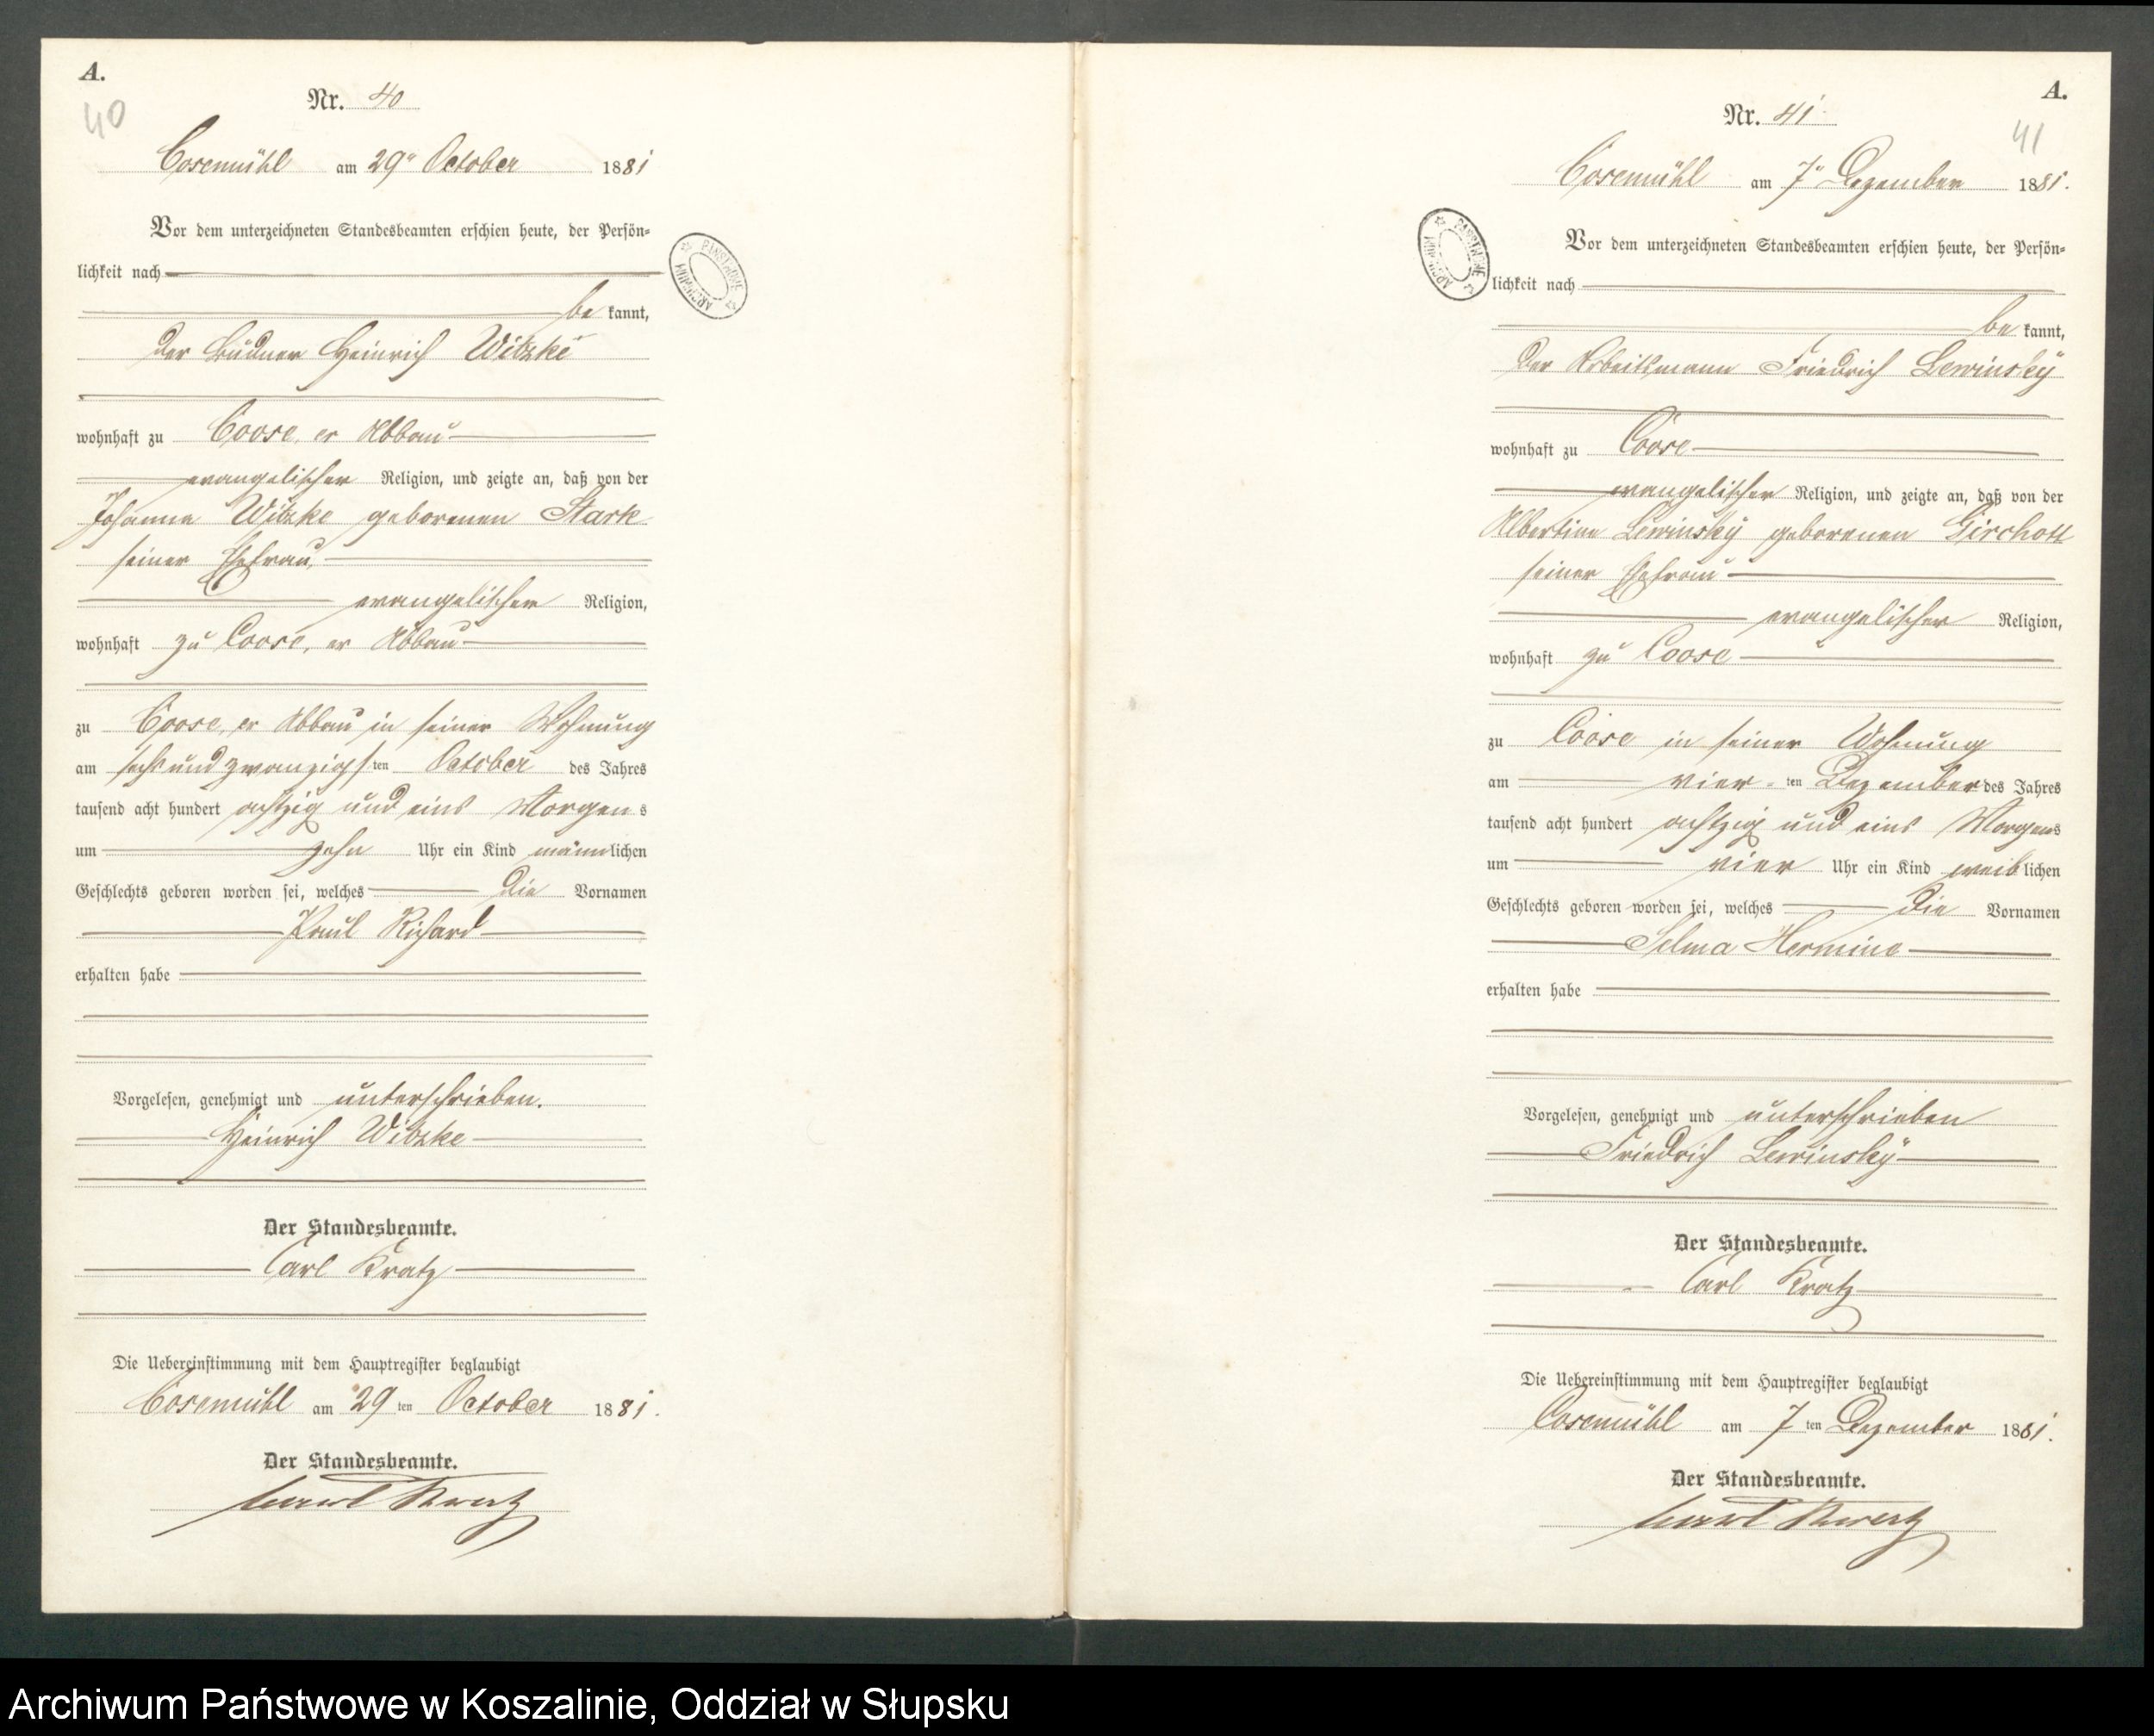 A.
40
Nr. 40
Cosemühl am 29ⁿ October 1881
Vor dem unterzeichneten Standesbeamten erschien heute, der Persön-
lichkeit nach
be kannt,
der Büdner Heinrich Witzke
wohnhaft zu Coose, er Abbau
evangelischer Religion, und zeigte an, daß von der
Johanna Witzke geborenen Stark
seiner Ehefrau,
evangelischer Religion,
wohnhaft zu Coose, er Abbau
zu Coose, er Abbau in seiner Wohnung
am sechsundzwanzigs ten October des Jahres
tausend acht hundert achtzig und eins Morgen s
um zehn Uhr ein Kind männ lichen
Geschlechts geboren worden sei, welches die Vornamen
Paul Richard
erhalten habe
Vorgelesen, genehmigt und unterschrieben.
Heinrich Witzke
Der Standesbeamte.
Carl Kratz
Die Uebereinstimmung mit dem Hauptregister beglaubigt
Cosemühl am 29 ten October 1881.
Der Standesbeamte.
Carl Kratz
ARCHIWUM PAŃSTWOWE
A.
41
Nr. 41
Cosemühl am 7ⁿ Dezember 1881.
Vor dem unterzeichneten Standesbeamten erschien heute, der Persön-
lichkeit nach
be kannt,
der Arbeitsmann Friedrich Lewinsky
wohnhaft zu Coose
evangelischer Religion, und zeigte an, daß von der
Albertine Lewinsky geborenen
seiner Ehefrau
evangelischer Religion,
wohnhaft zu Coose
zu Coose in seiner Wohnung
am vier- ten Dezember des Jahres
tausend acht hundert achtzig und eins Morgens
um vier Uhr ein Kind weib lichen
Geschlechts geboren worden sei, welches die Vornamen
Selma Hermine
erhalten habe
Vorgelesen, genehmigt und unterschrieben
Friedrich Lewinsky
Der Standesbeamte.
Carl Kratz
Die Uebereinstimmung mit dem Hauptregister beglaubigt
Cosemühl am 7 ten Dezember 1881.
Der Standesbeamte.
Carl Kratz
ARCHIWUM PAŃSTWOWE
Archiwum Państwowe w Koszalinie, Oddział w Słupsku